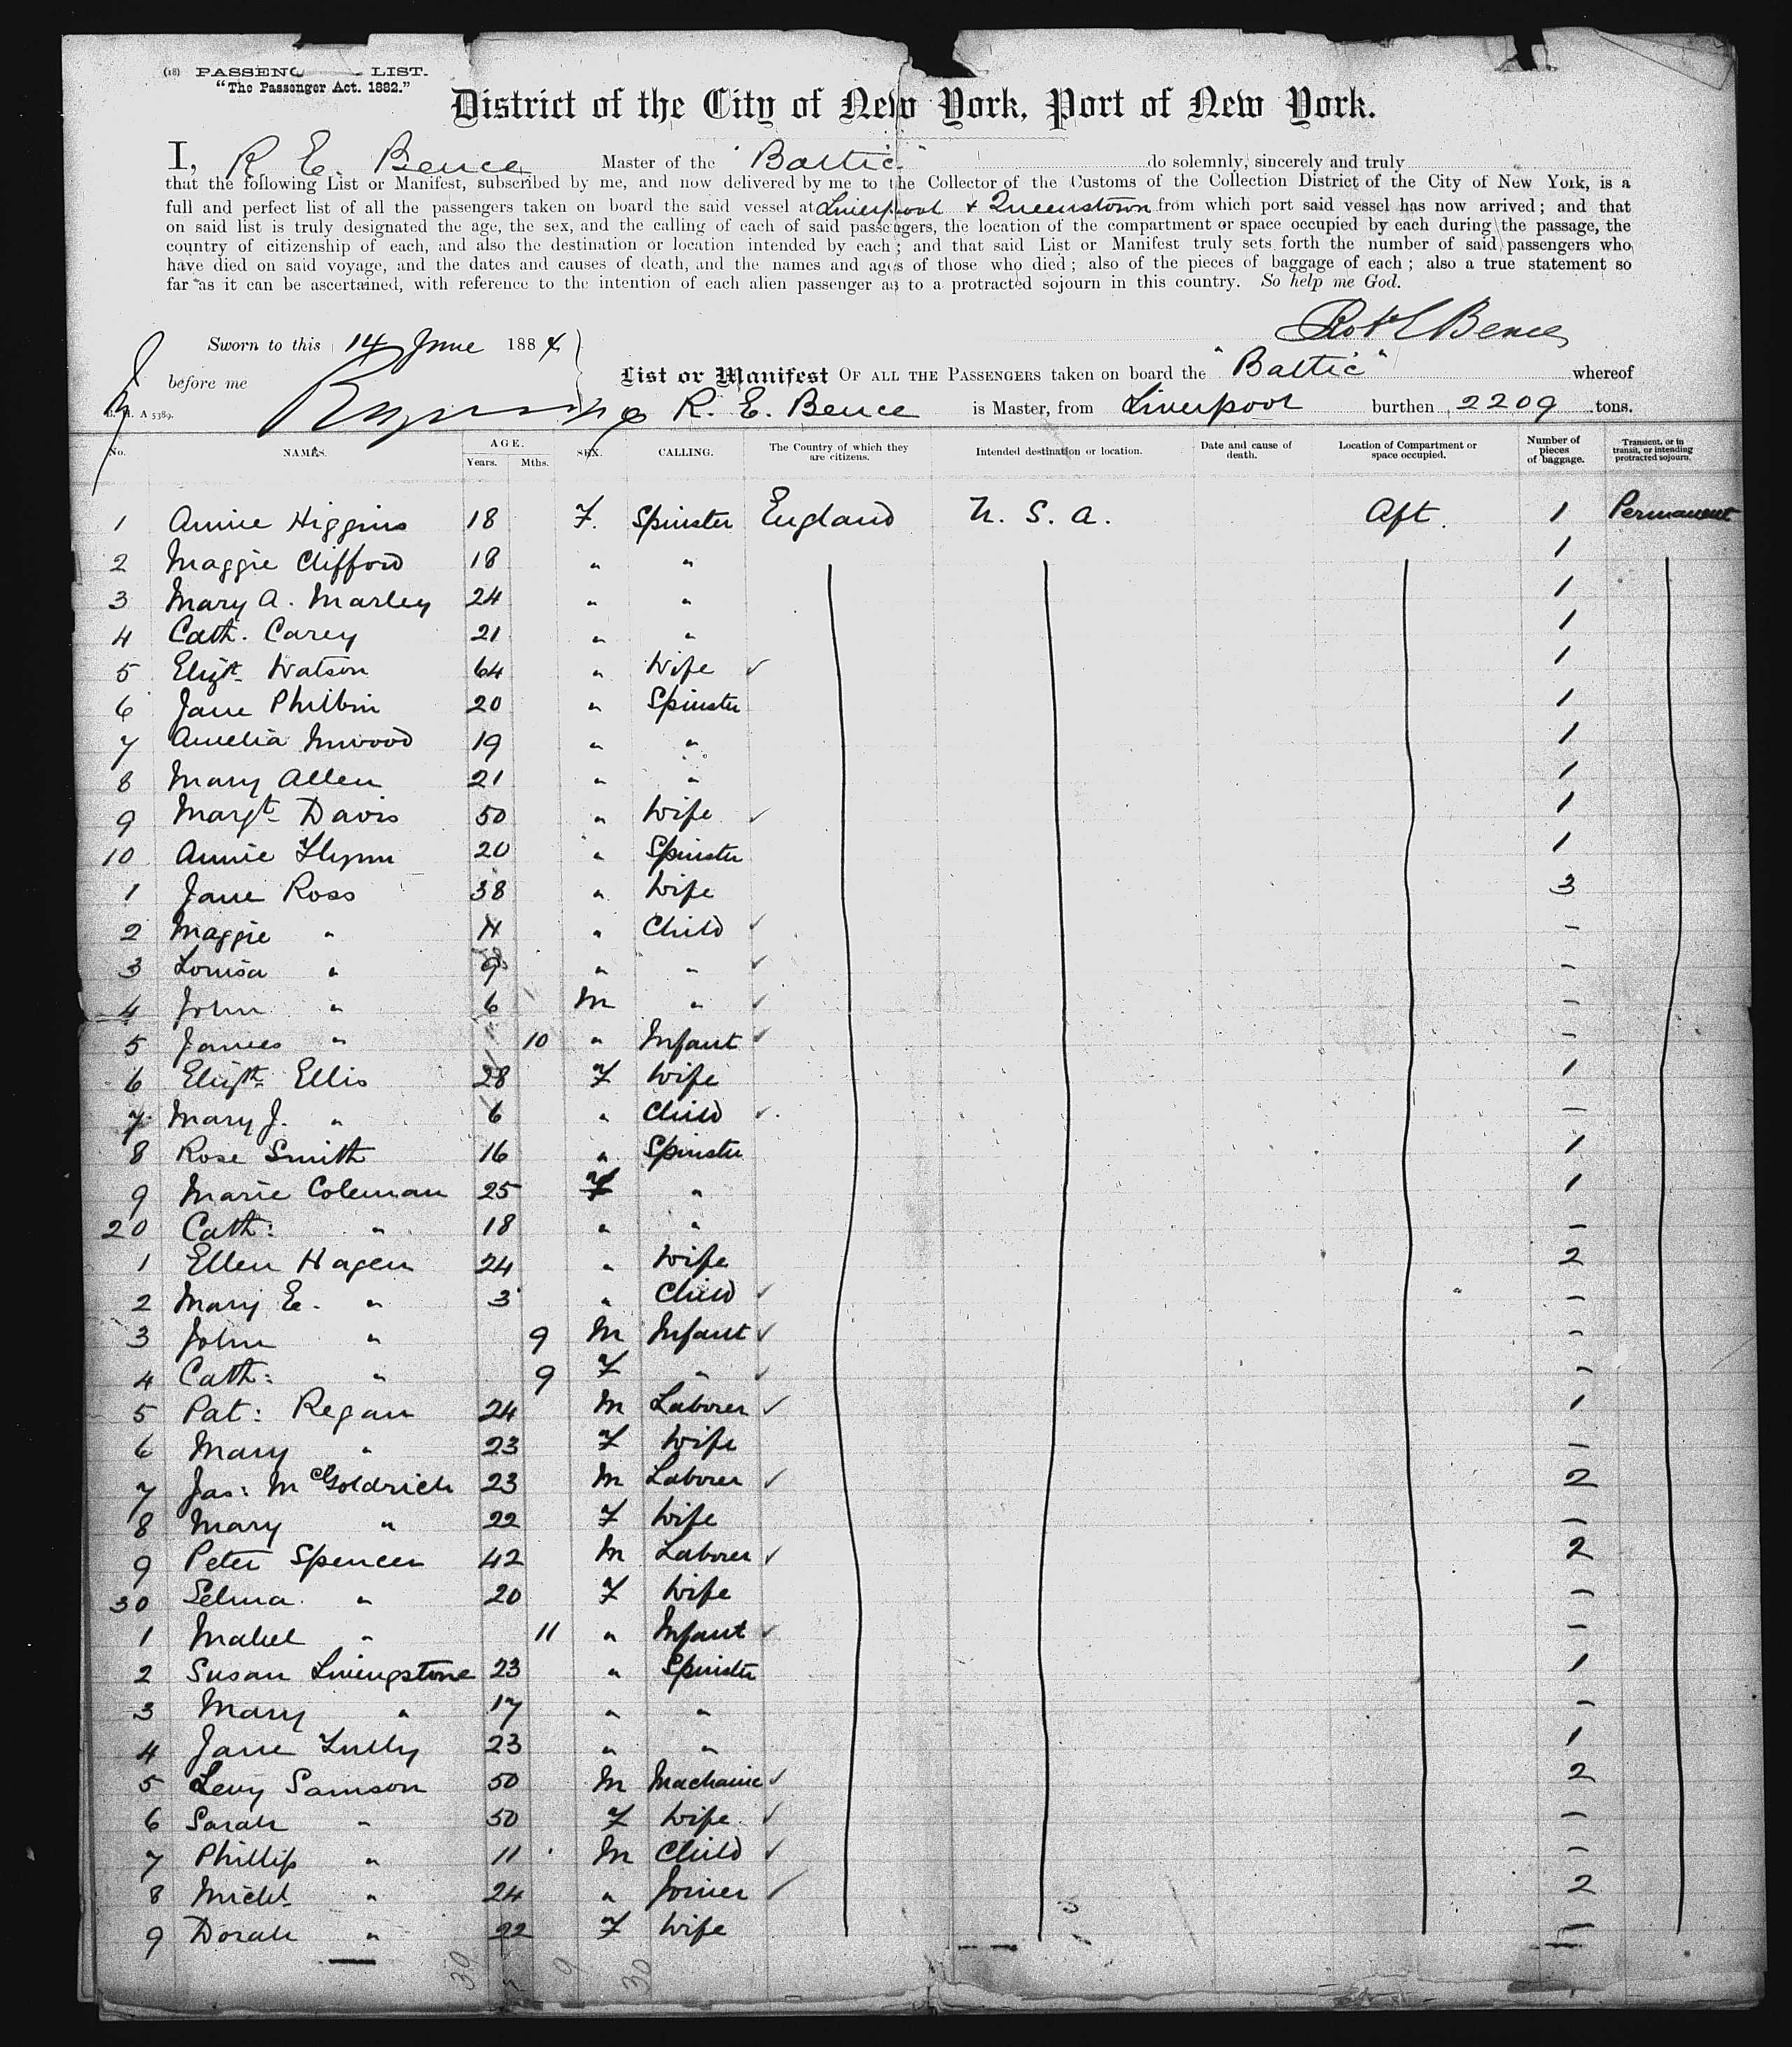 (18) PASSENG LIST.
"The Passenger Act. 1882."
District of the City of New York, Port of New York.
I, R. E. Bence Master of the "Baltic" do solemnly, sincerely and truly
that the following List or Manifest, subscribed by me, and now delivered by me to the Collector of the Customs of the Collection District of the City of New York, is a
full and perfect list of all the passengers taken on board the said vessel at Liverpool & Queenstown from which port said vessel has now arrived; and that
on said list is truly designated the age, the sex, and the calling of each of said passengers, the location of the compartment or space occupied by each during the passage, the
country of citizenship of each, and also the destination or location intended by each; and that said List or Manifest truly sets forth the number of said passengers who
have died on said voyage, and the dates and causes of death, and the names and ages of those who died; also of the pieces of baggage of each; also a true statement so
far as it can be ascertained, with reference to the intention of each alien passenger as to a protracted sojourn in this country. So help me God.
Robt E Bence
Sworn to this 14 June 1884
before me
List or Manifest OF ALL THE PASSENGERS taken on board the "Baltic" whereof
A 5389. R. E. Bence is Master, from Liverpool burthen 2209 tons.
No. NAMES. AGE. Years. Mths. SEX. CALLING. The Country of which they are citizens. Intended destination or location. Date and cause of death. Location of Compartment or space occupied. Number of pieces of baggage. Transient, or in transit, or intending protracted sojourn.
1 Annie Higgins 18 F. Spinster England U. S. A. Aft. 1 Permanent
2 Maggie Clifford 18 " " 1
3 Mary A. Marley 24 " " 1
4 Cath. Carey 21 " " 1
5 Elizth Watson 64 " Wife ✓ 1
6 Jane Philbin 20 " Spinster 1
7 Amelia Inwood 19 " " 1
8 Mary Allen 21 " " 1
9 Margt Davis 50 " Wife ✓ 1
10 Annie Flynn 20 " Spinster 1
1 Jane Ross 38 " Wife 3
2 Maggie " 11 " Child ✓ -
3 Louisa " 9 " " ✓ -
4 John " 6 M " ✓ -
5 James " 10 " Infant ✓ -
6 Elizth Ellis 28 F Wife 1
7 Mary J. " 6 " Child ✓ -
8 Rose Smith 16 " Spinster 1
9 Marie Coleman 25 F " 1
20 Cath: " 18 " " -
1 Ellen Hagen 24 " Wife 2
2 Mary E. " 3 " Child ✓ -
3 John " 9 M Infant ✓ -
4 Cath: " 9 F " ✓ -
5 Pat: Regan 24 M Laborer ✓ 1
6 Mary " 23 F Wife -
7 Jas: McGoldrich 23 M Laborer ✓ 2
8 Mary " 22 F Wife -
9 Peter Spencer 42 M Laborer ✓ 2
30 Selma " 20 F Wife -
1 Mabel " 11 " Infant ✓ -
2 Susan Livingstone 23 " Spinster 1
3 Mary " 17 " " -
4 Jane Tully 23 " " 1
5 Levy Samson 50 M Machanic ✓ 2
6 Sarah " 50 F Wife ✓ -
7 Phillip " 11 M Child ✓ -
8 Michl " 24 " Joiner ✓ 2
9 Dorah " 22 F Wife -
30 9 30